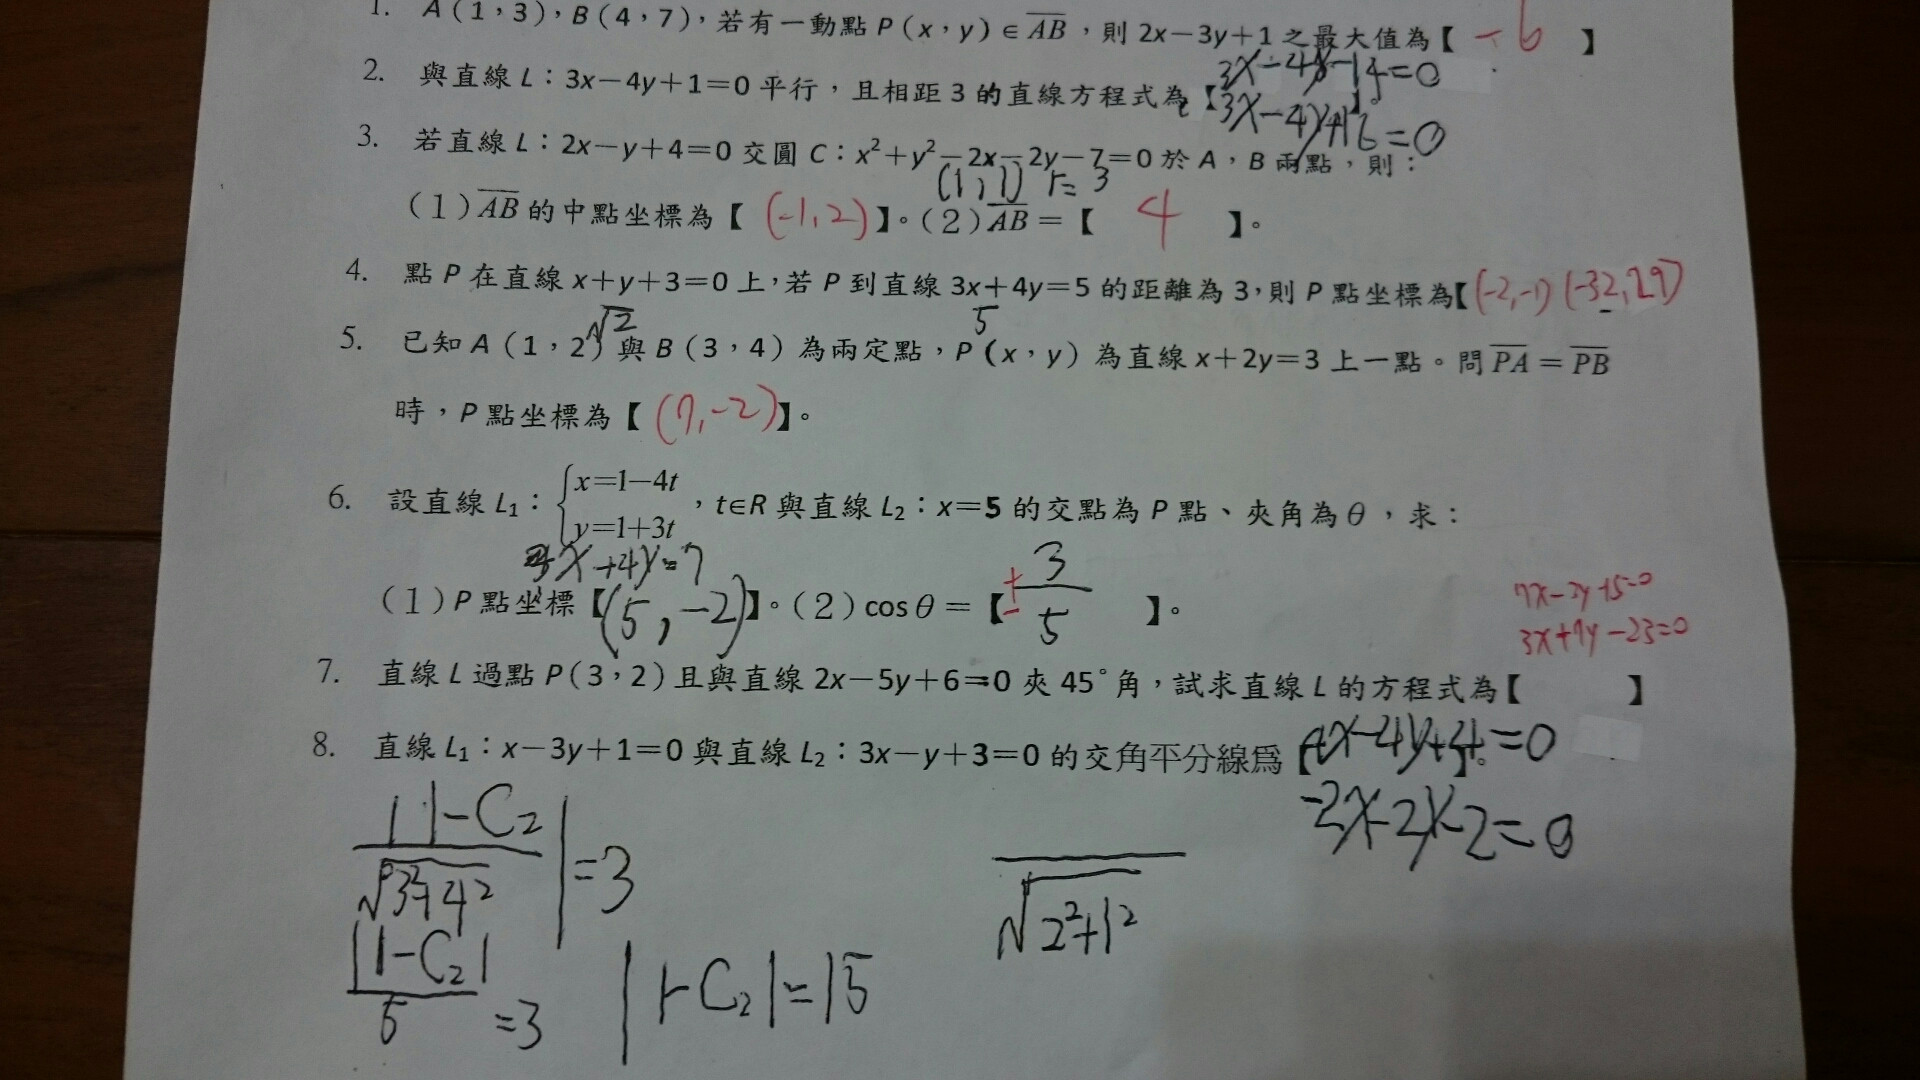 1. A(1,3),B(4,7),若有一動點P(x,y)∈AB,則2x−3y+1之最大值為【 -6 】
3x-4y-14=0
2. 與直線L:3x−4y+1=0平行,且相距3的直線方程式為【3x-4y+16=0】。
3. 若直線L:2x−y+4=0交圓C:x²+y²−2x−2y−7=0於A,B兩點,則:
(1,1) r=3
(1)AB的中點坐標為【 (-1,2) 】。(2)AB=【 4 】。
4. 點P在直線x+y+3=0上,若P到直線3x+4y=5的距離為3,則P點坐標為【(-2,-1) (-32,29)
√2 5
5. 已知A(1,2)與B(3,4)為兩定點,P(x,y)為直線x+2y=3上一點。問PA=PB
時,P點坐標為【 (7,-2) 】。
6. 設直線L₁:{x=1−4t
y=1+3t,t∈R與直線L₂:x=5的交點為P點、夾角為θ,求:
3x+4y=7
(1)P點坐標【(5,-2)】。(2)cosθ=【 ±3/5 】。
7x-3y+5=0
3x+7y-23=0
7. 直線L過點P(3,2)且與直線2x−5y+6=0夾45°角,試求直線L的方程式為【 】
8. 直線L₁:x−3y+1=0與直線L₂:3x−y+3=0的交角平分線為【4x-4y+4=0】。
-2x-2y-2=0
|1-C₂/√3²+4²|=3
√2²+1²
|1-C₂|/5=3
|1-C₂|=15